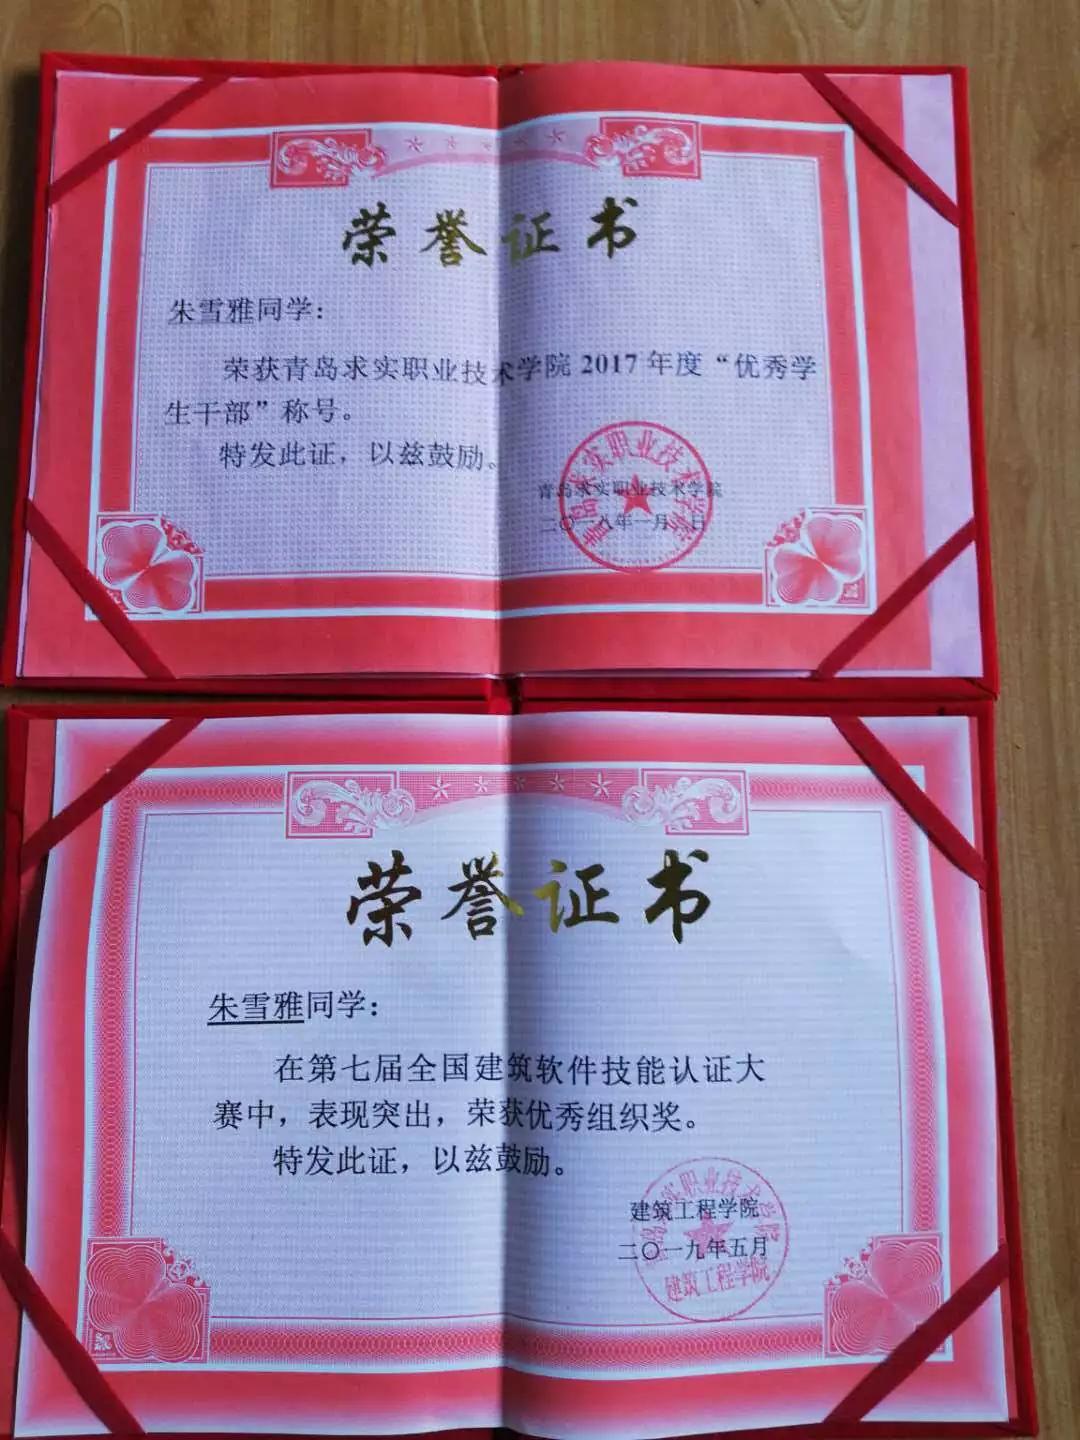 荣誉证书
朱雪雅同学：
荣获青岛求实职业技术学院2017年度“优秀学
生干部”称号。
特发此证，以兹鼓励。
青岛求实职业技术学院
青岛求实职业技术学院
二〇一八年一月 日
荣誉证书
朱雪雅同学：
在第七届全国建筑软件技能认证大
赛中，表现突出，荣获优秀组织奖。
特发此证，以兹鼓励。
青岛求实职业技术学院
建筑工程学院
二〇一九年五月
建筑工程学院